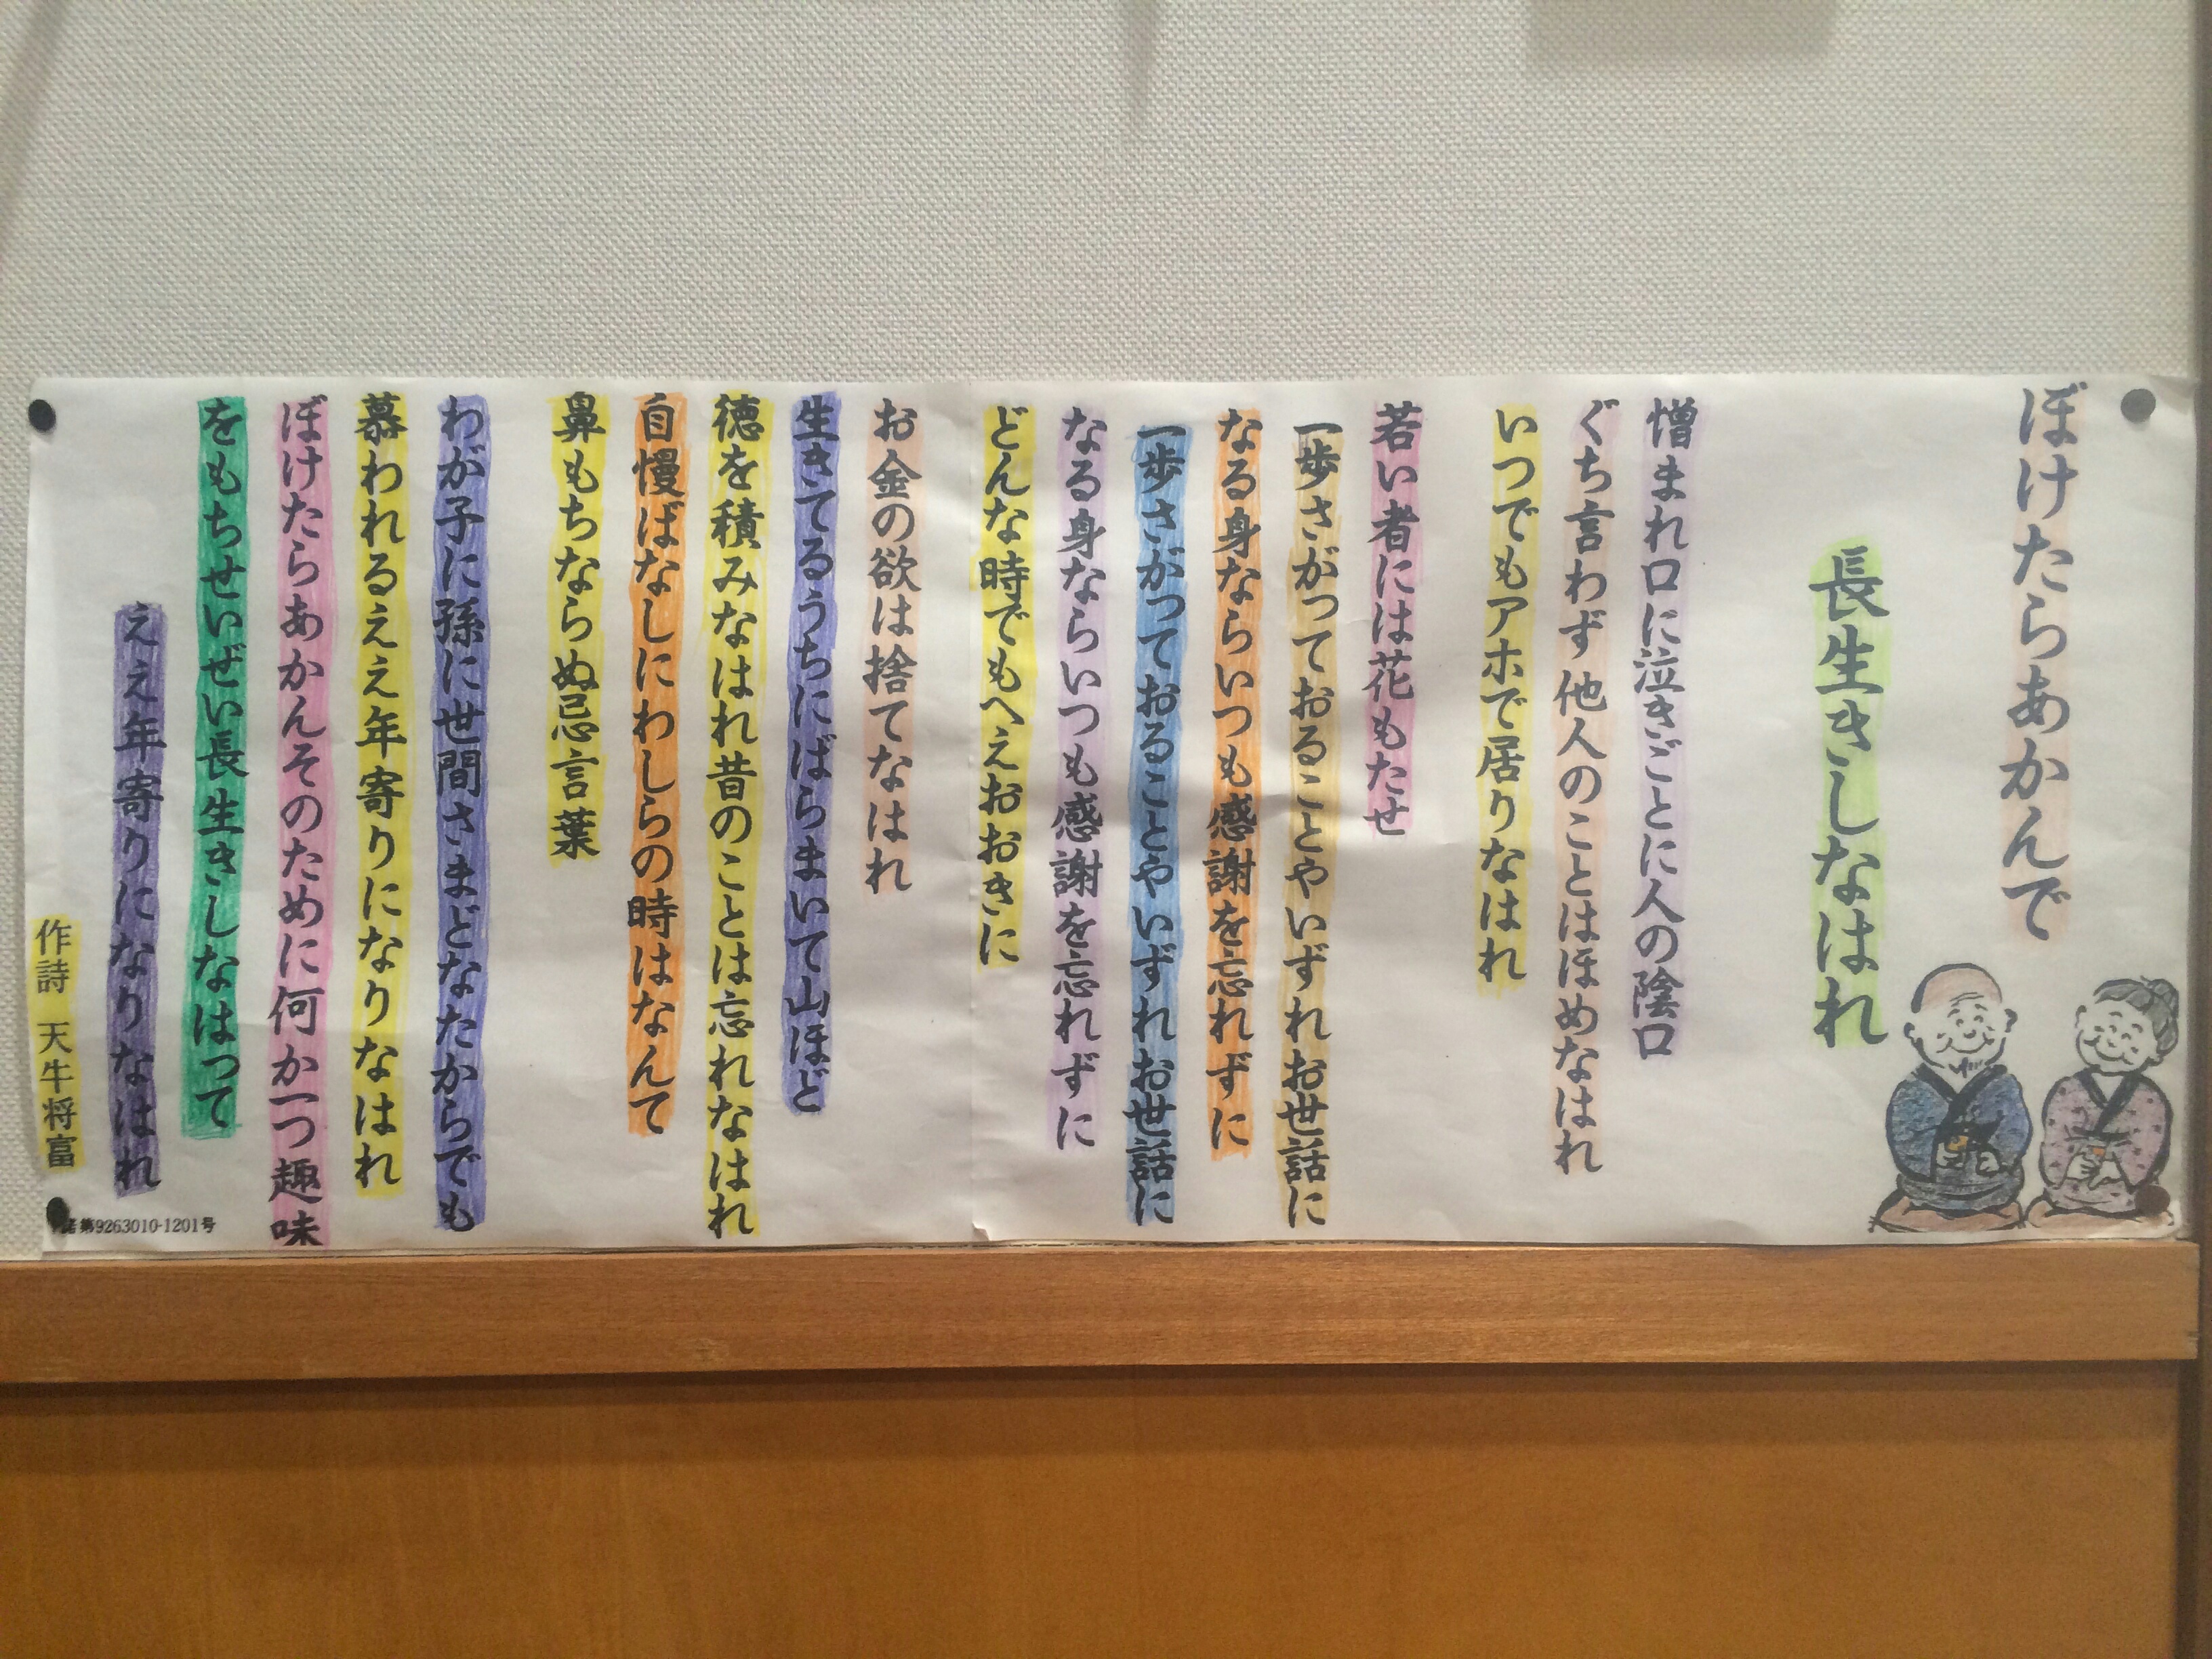 ぼけたらあかんで
長生きしなはれ
憎まれ口に泣きごとに人の陰口
ぐち言わず他人のことはほめなはれ
いつでもアホで居りなはれ
若い者には花もたせ
一歩さがっておることやいずれお世話に
なる身ならいつも感謝を忘れずに
一歩さがっておることやいずれお世話に
なる身ならいつも感謝を忘れずに
どんな時でもへえおおきに
お金の欲は捨てなはれ
生きてるうちにばらまいて山ほど
徳を積みなはれ昔のことは忘れなはれ
自慢ばなしにわしらの時はなんて
鼻もちならぬ忌言葉
わが子に孫に世間さまどなたからでも
慕われるええ年寄りになりなはれ
ぼけたらあかんそのために何か一つ趣味
をもちせいぜい長生きしなはって
ええ年寄りになりなはれ
作詩 天牛将富
諾第9263010-1201号